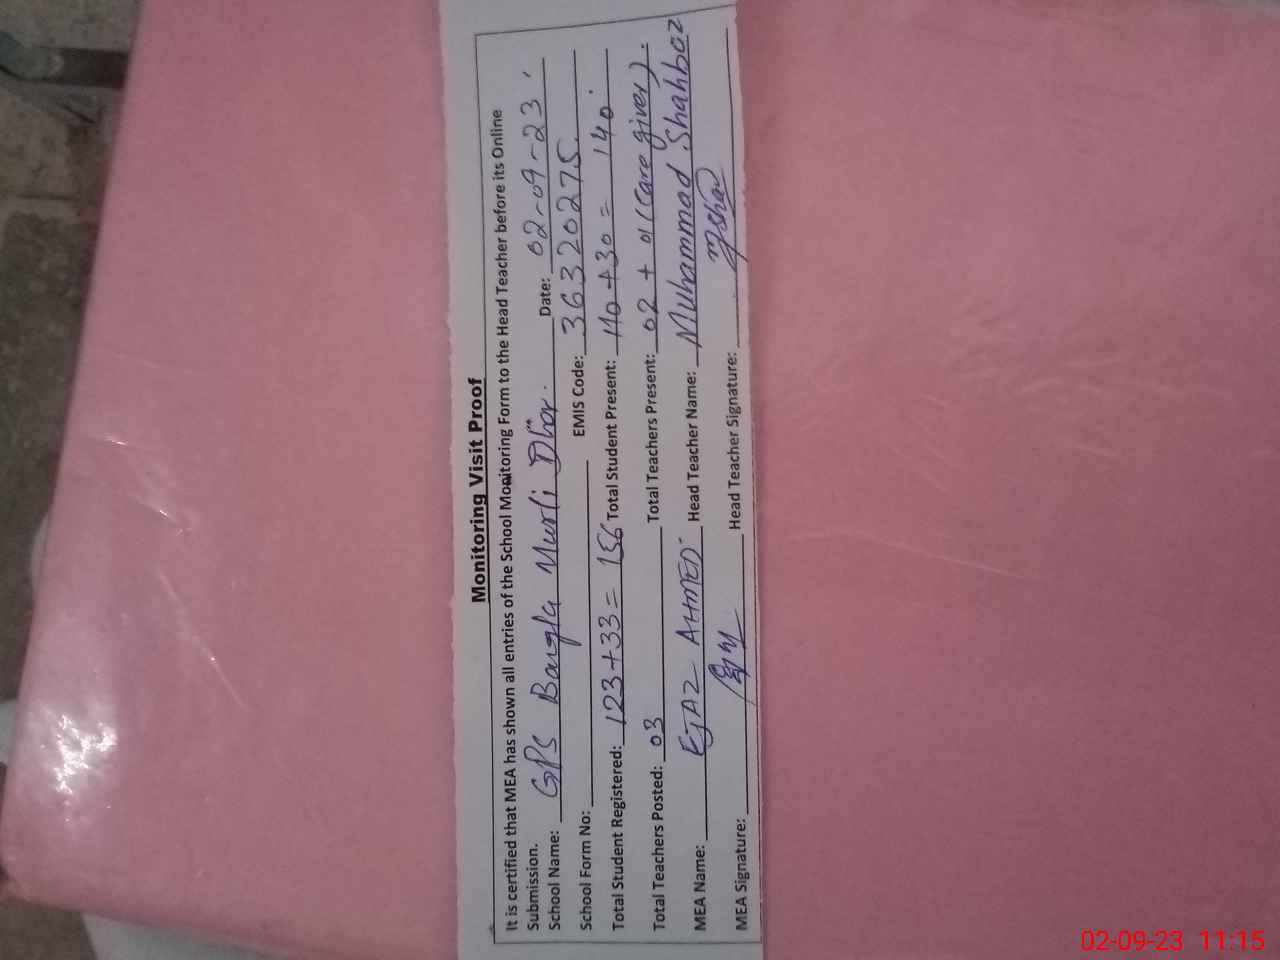 Monitoring Visit Proof
It is certified that MEA has shown all entries of the School Monitoring Form to the Head Teacher before its Online
Submission.
School Name: GPS Bangla Murli Dhar. Date: 02-09-23
School Form No: EMIS Code: 36320275
Total Student Registered: 123+33= 156 Total Student Present: 110+30= 140
Total Teachers Posted: 03 Total Teachers Present: 02 + 01 (Care giver).
MEA Name: EJAZ AHMED Head Teacher Name: Muhammad Shahbaz
MEA Signature: Head Teacher Signature:
02-09-23 11:15